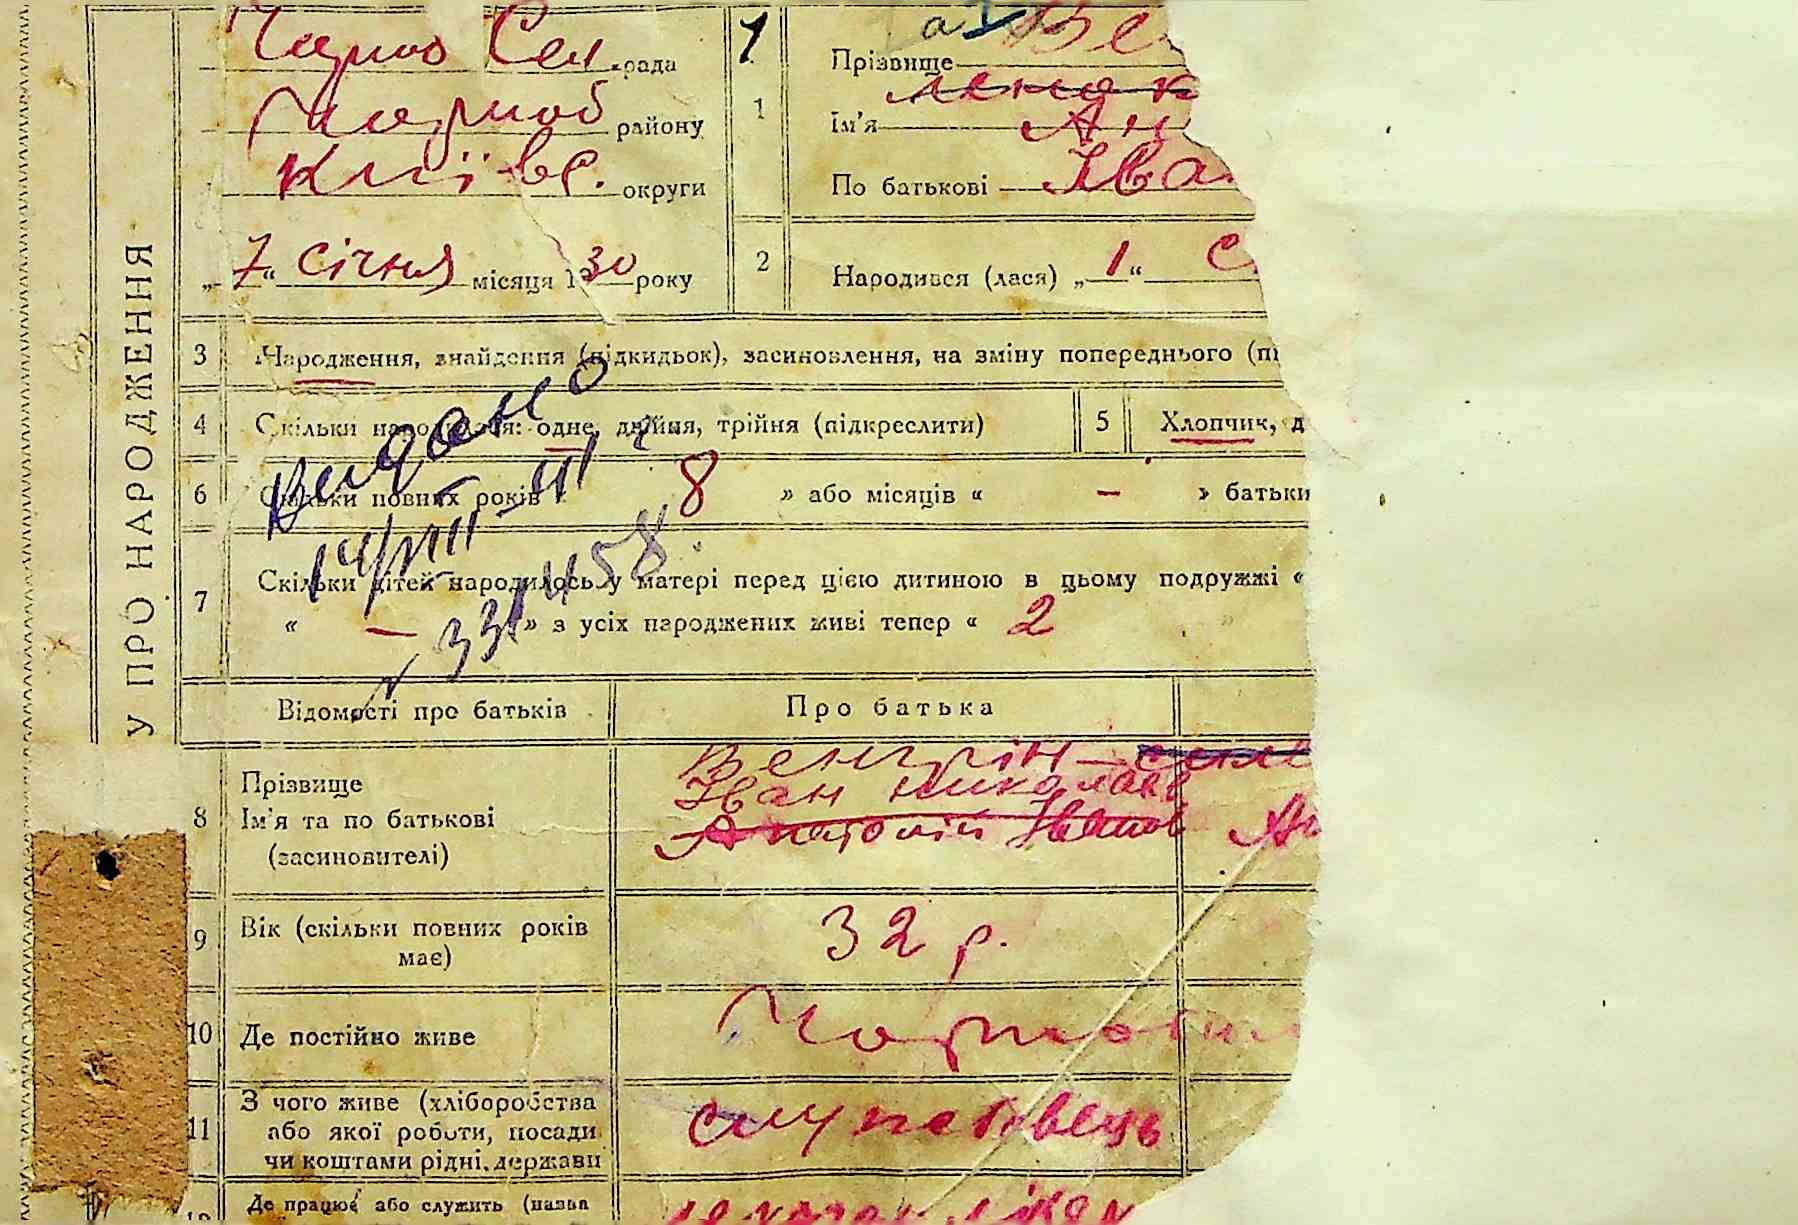 Сел. рада
1
Прізвище Ве
району
1
Ім'я Ан
Київс. округи
По батькові Іва
„7“ січня місяця 1930 року
2
Народився (лася) „1“ с
У ПРО НАРОДЖЕННЯ
3 Народження, знайдення (підкидьок), засиновлення, на зміну попереднього (п
4 Скільки народилося: одне, двійня, трійня (підкреслити)
5 Хлопчик, д
Видано
6 Скільки повних років « 8 » або місяців « – » батьки
14/VIII
7 Скільки дітей народилось у матері перед цією дитиною в цьому подружжі «
« – » з усіх народжених живі тепер « 2 »
Відомості про батьків
Про батька
8 Прізвище
Ім'я та по батькові
(засиновителі)
Венгрін
Іван Николаєв
Анатолій Іванов
9 Вік (скільки повних років має)
32 р.
10 Де постійно живе
Чорнобил
11 З чого живе (хліборобства
або якої роботи, посади
чи коштами рідні, держави
службовець
Де працює або служить (назва